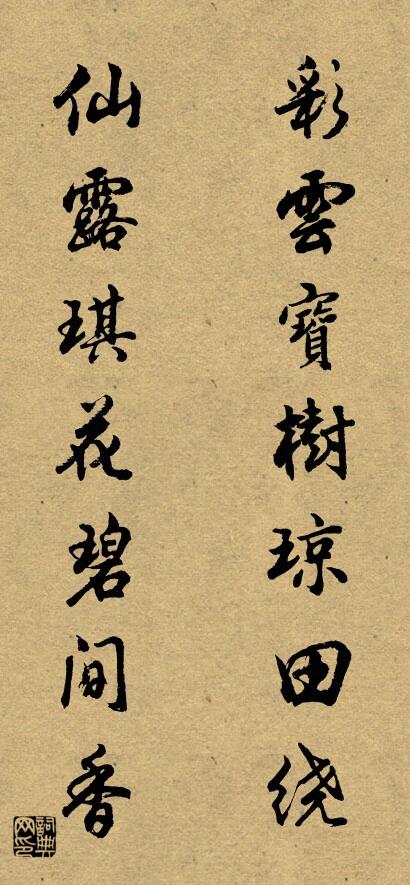 彩雲寶樹琼田绕
仙露琪花碧间香
詞典网印